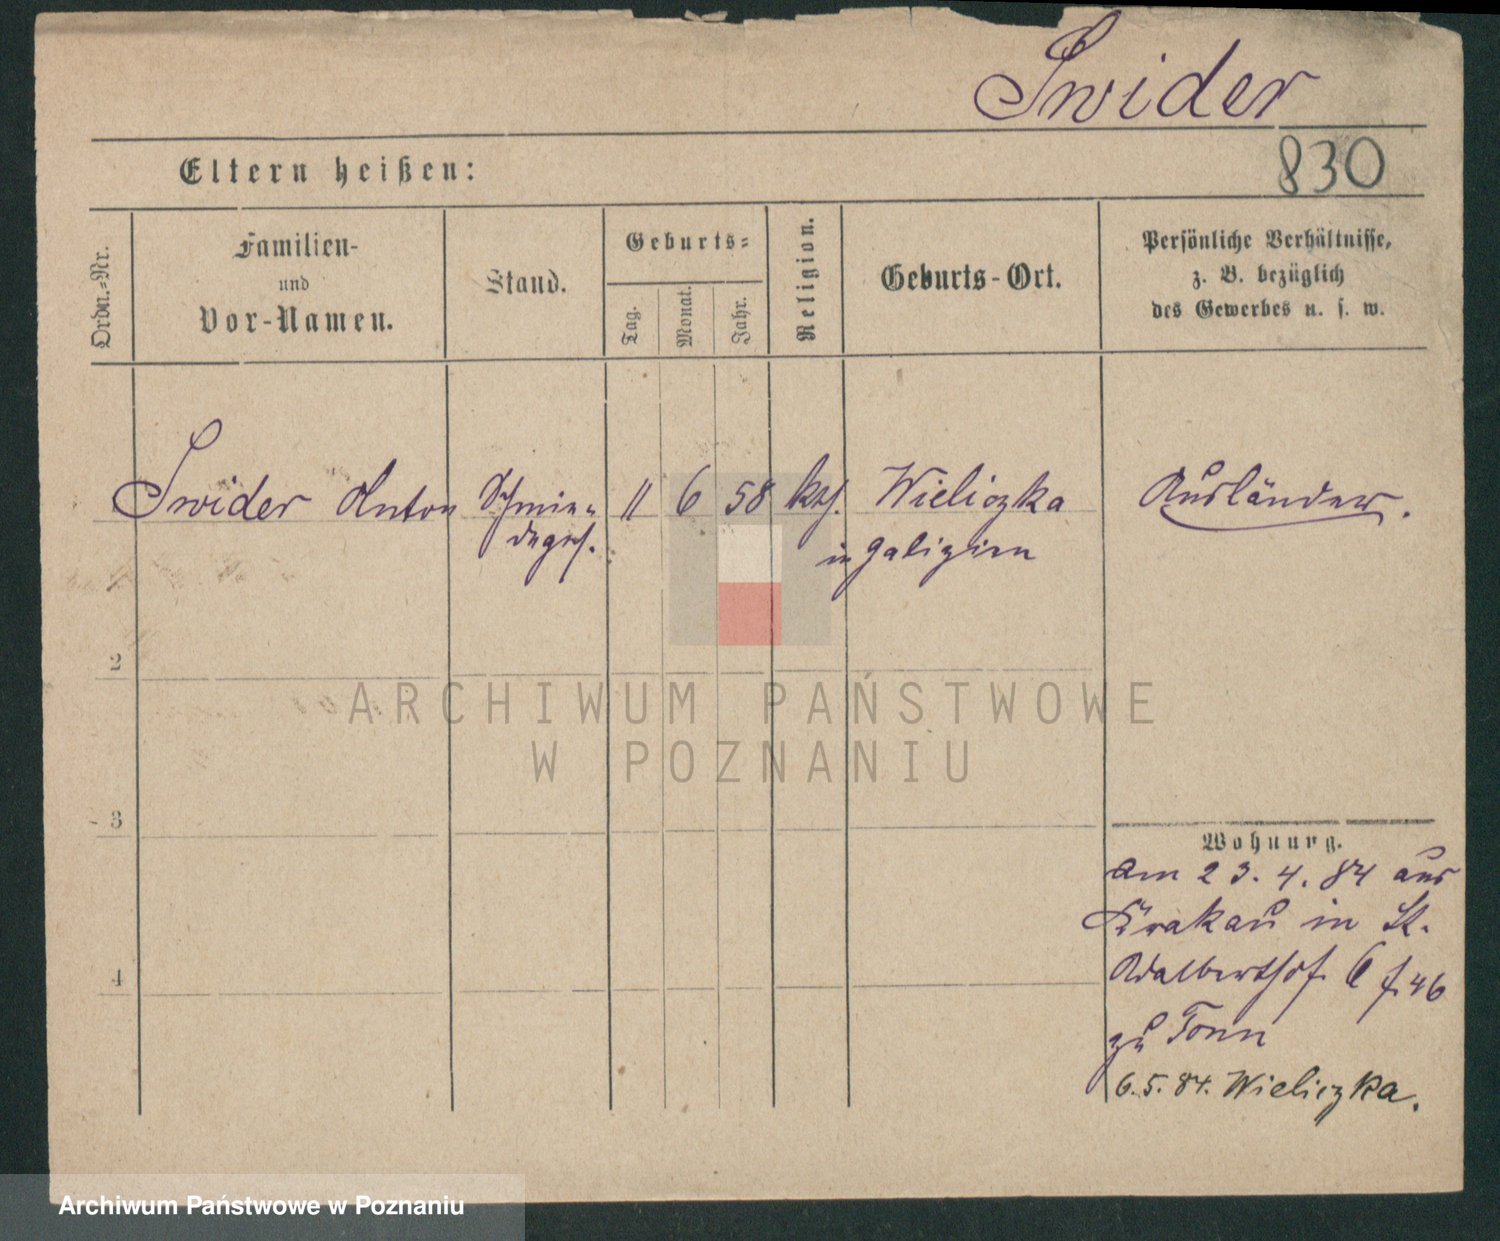 Swider
830
Eltern heißen:
Ordn.-Nr.
Familien-
und
Vor-Namen.
Stand.
Geburts-
Tag.
Monat.
Jahr.
Religion.
Geburts-Ort.
Persönliche Verhältnisse,
z. B. bezüglich
des Gewerbes u. s. w.
Swider Anton Schmie- 11 6 58 kth. Wieliczka Ausländer.
deges. in Galizien
2
3
4
Wohnung.
am 23. 4. 84 aus
Krakau in St.
Adalberthof. 6 f. 46
zu Tonn
6. 5. 84. Wieliczka.
ARCHIWUM PAŃSTWOWE
W POZNANIU
Archiwum Państwowe w Poznaniu